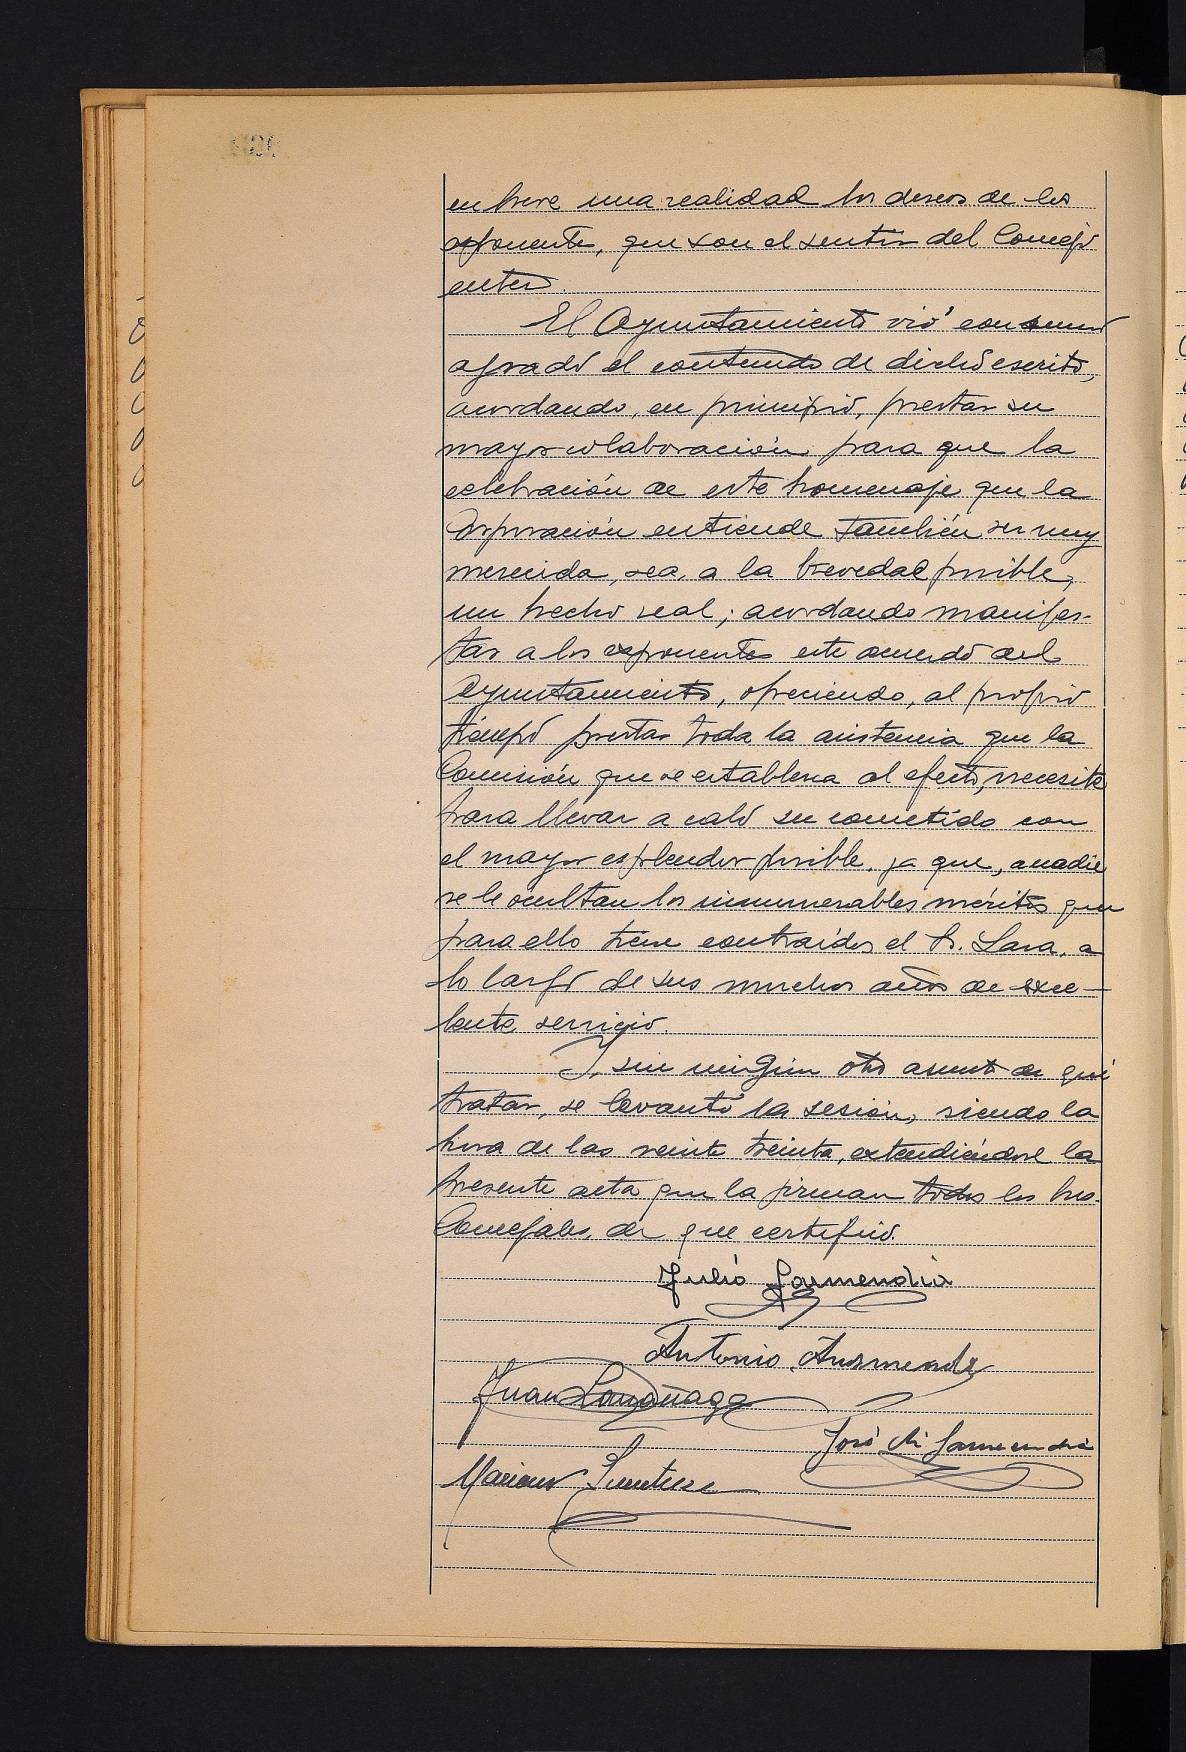 en breve una realidad los deseos de los
exponentes, que son el sentir del Concejo
entero.
El Ayuntamiento vió con sumo
agrado el contenido de dicho escrito,
acordando, en principio, prestar su
mayor colaboración para que la
celebración de este homenaje que la
Corporación entiende también ser muy
merecida, sea, a la brevedad posible,
un hecho real; acordando manifes-
tar a los exponentes este acuerdo del
Ayuntamiento, ofreciendo, al propio
tiempo prestar toda la asistencia que la
Comisión que se establezca al efecto, necesite
para llevar a cabo su cometido con
el mayor esplendor posible, ya que, a nadie
se le ocultan los innumerables méritos que
para ello tiene contraídos el Sr. Lasa, a
lo largo de sus muchos años de exce-
lente servicio.
Y, sin ningún otro asunto de qué
tratar, se levantó la sesión, siendo la
hora de las veinte treinta, extendiéndose la
presente acta que la firman todos los Sres.
Concejales, de que certifico.
Julió Garmendia
Antonio
Juan Larrañaga
José Mi Garmendia
Mariano